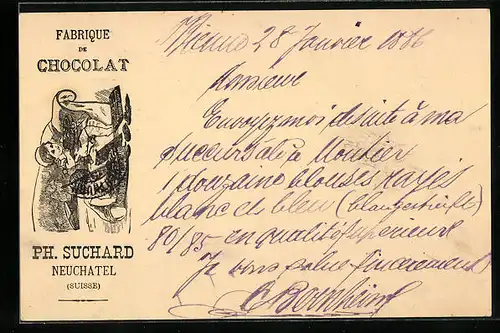 FABRIQUE
DE
CHOCOLAT
PH. SUCHARD
NEUCHATEL
(SUISSE)
Bienne 28 Janvier 1886
Monsieur
Envoyez moi de suite à ma
succursale à Moutier
1 douzaine blouses rayés
blanc et bleu (blaugestreift)
80/85 en qualité supérieure
Je vous salue sincèrement
Bernheim